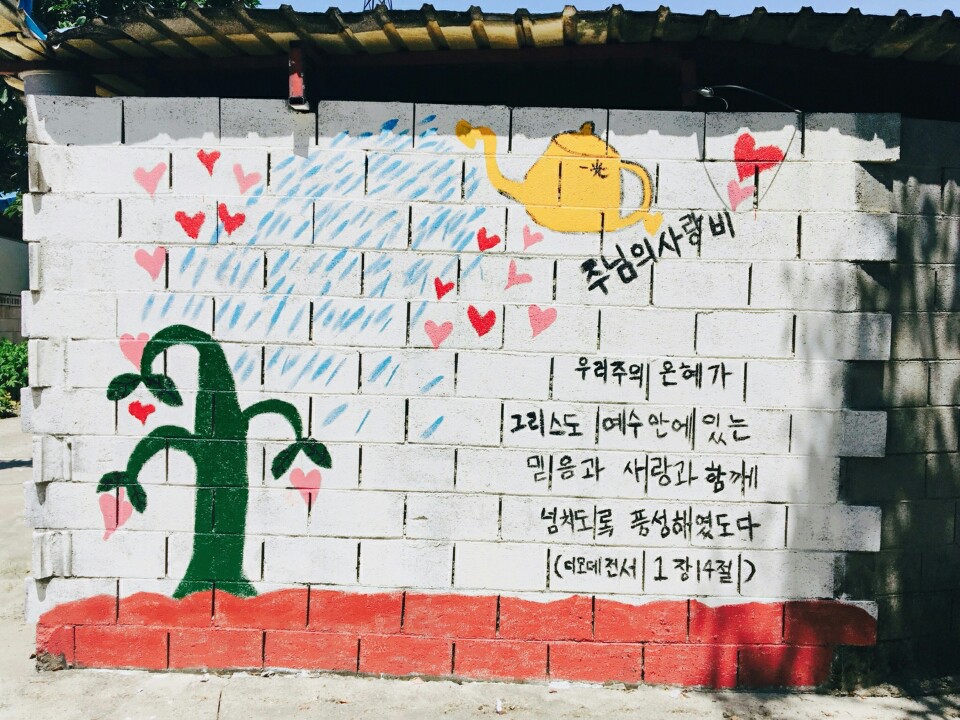 一光
주님의사랑비
우리주의 은혜가
그리스도 예수안에 있는
믿음과 사랑과 함께
넘치도록 풍성해였도다
(디모데전서 1장14절)